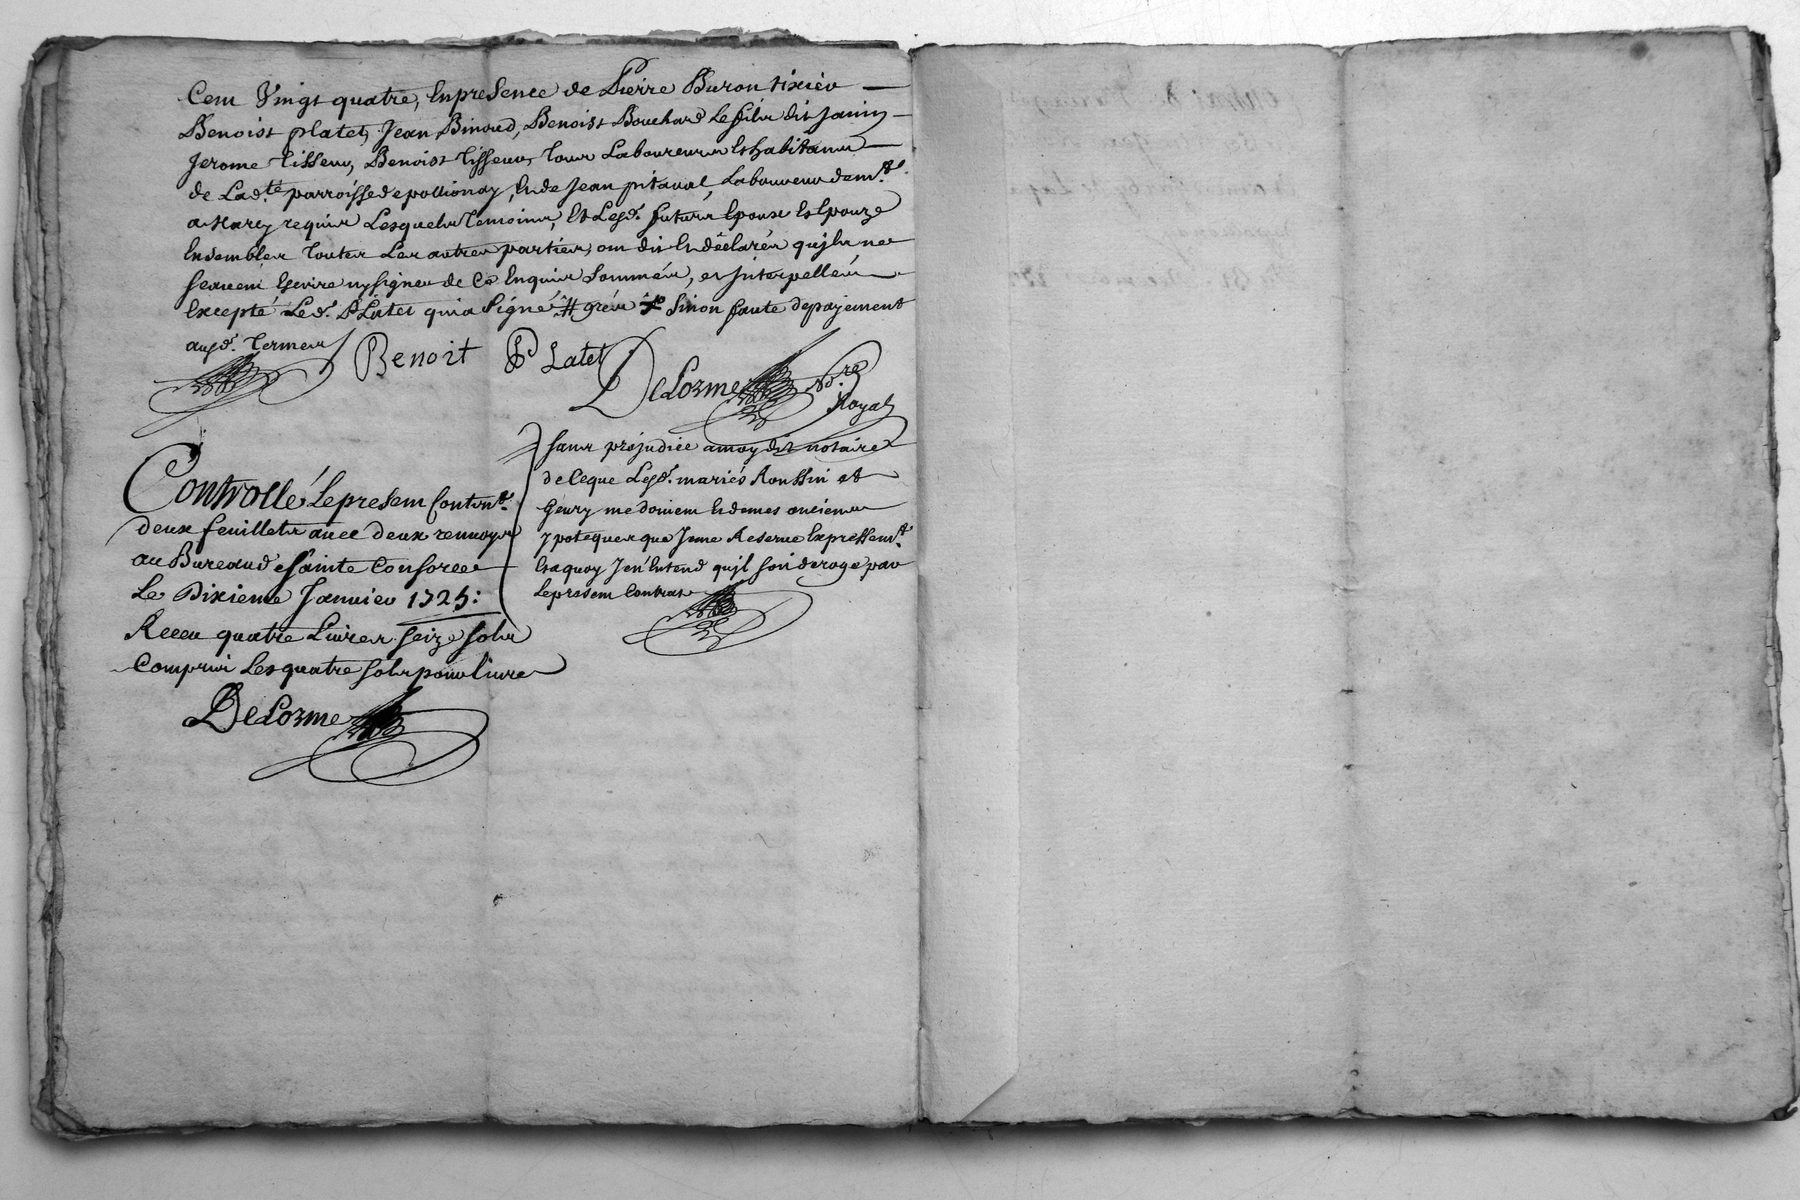 Cent Vingt quatre, Enpresence de Pierre Buron tixier
Benoist platet, Jean Binoud, Benoist Bouchard Le fils dit Janin
Jerome Tisseur, Benoist Tisseur, Tous Laboureurs Et habitans
de Lad.te parroisse de pollionay, Et de Jean pitaval, Laboureur dem.t
a Marcy requis Lesquels Temoins, Et Lesd. futurs Epoux Et Epouze
Ensembles Toutes Les autres parties, ont dit Et déclarés qu'ils ne
scavent Escrire ny signer de Ce Enquis Sommés, et Interpellés
Excepté Led. Platet qui a Signé grés Sinon faute depayement
ausd. Termes
Benoit Platet
DeLorme No.re
Royal
Controllé Lepresent Cont.nt
deux feuillets avec deux renvoys
au Bureau de Sainte Consorce
Le Dixieme Janvier 1725:
Receu quatre Livres seize sols
Compris Les quatre sols pour livre
DeLorme
sans préjudice a moy dit notaire
de Ceque Lesd. mariés Roussin et
Geury me doivent Et de mes anciennes
ypoteques que Je me Reserve Expressem.t
Et a quoy Je n'Entend qu'il soit deroge par
Le present Contrat